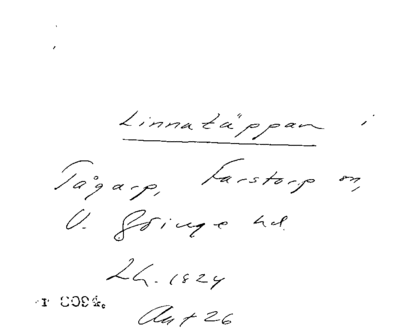 Linnatäppan i
Tågarp, Farstorp sn,
V. Göinge hd.
Lh. 1824
Akt 26